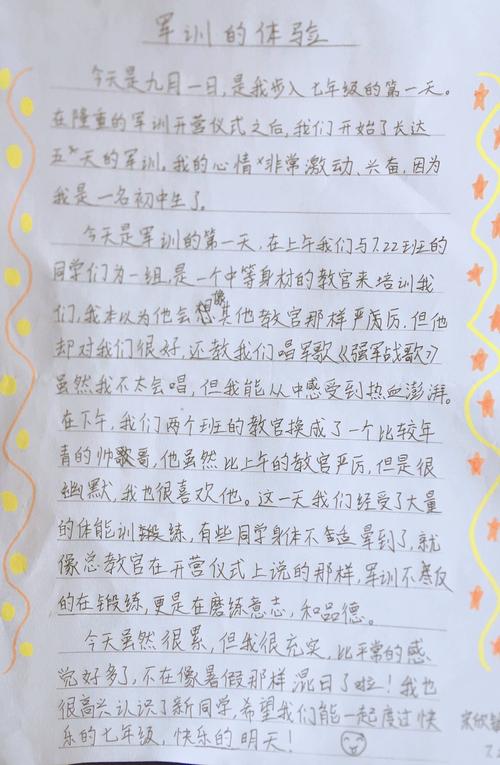 军训的体验
今天是九月一日,是我步入七年级的第一天。
在隆重的军训开营仪式之后,我们开始了长达
五天的军训。我的心情非常激动、兴奋,因为
我是一名初中生了。
今天是军训的第一天,在上午我们与7.22班的
同学们为一组,是一个中等身材的教官来培训我
们,我本以为他会想像其他教官那样严厉厉,但他
却对我们很好,还教我们唱军歌《强军战歌》
虽然我不太会唱,但我能从中感受到热血澎湃。
在下午,我们两个班的教官换成了一个比较年
青的帅歌哥,他虽然比上午的教官严厉,但是很
幽默,我也很喜欢他。这一天我们经受了大量
的体能训锻练,有些同学身体不适晕到了,就
像总教官在开营仪式上说的那样,军训不仅仅
的在锻练,更是在磨练意志,和品德。
今天虽然很累,但我很充实,比平常的感
觉好多了,不在像暑假那样混日了啦!我也
很高兴认识了新同学,希望我们能一起度过快
乐的七年级,快乐的明天!